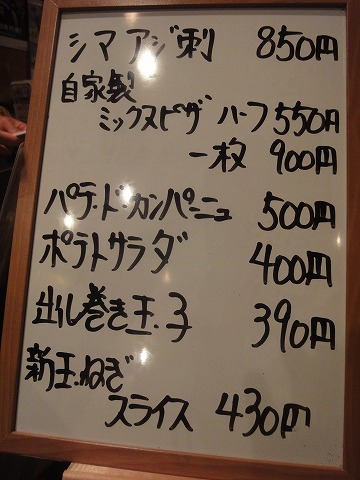 シマアジ刺 850円
自家製
ミックスピザ ハーフ 550円
一枚 900円
パテ・ド・カンパーニュ 500円
ポテトサラダ 400円
出し巻き玉子 390円
新玉ねぎ
スライス 430円